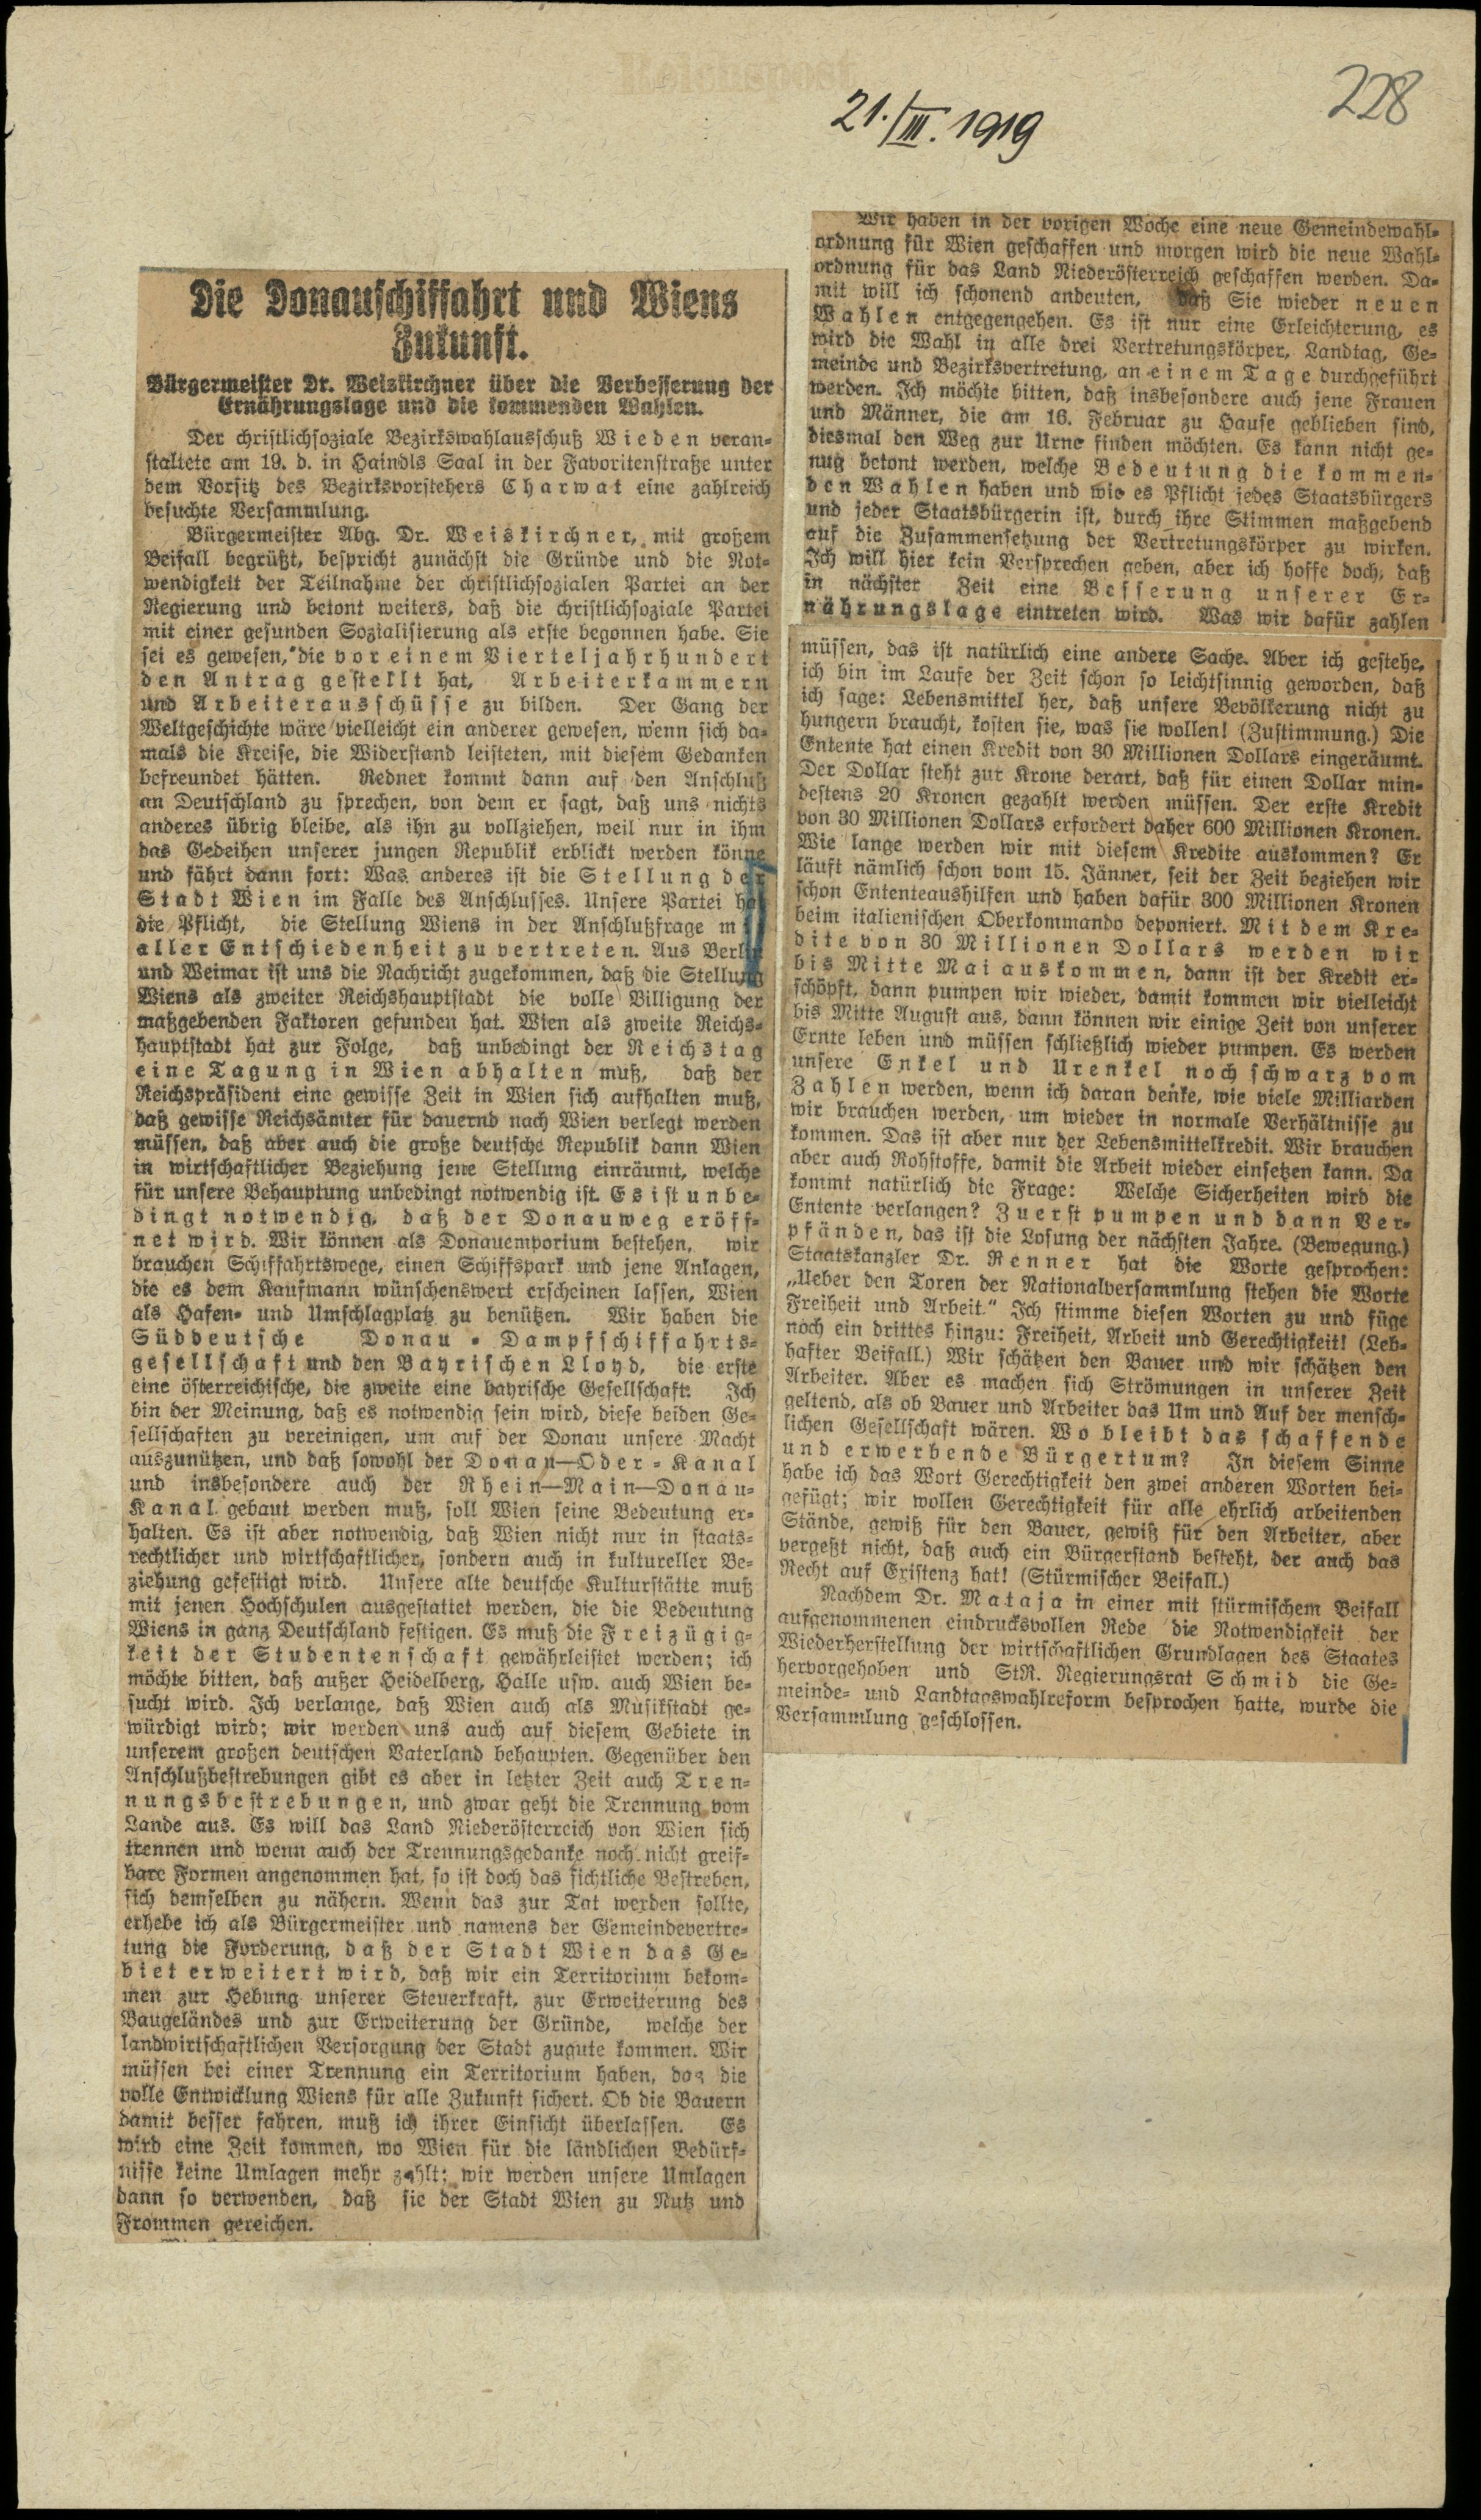 21./III. 1919
228
Die Donauschiffahrt und Wiens
Zukunft.
Bürgermeister Dr. Weiskirchner über die Verbesserung der
Ernährungslage und die kommenden Wahlen.
Der christlichsoziale Bezirkswahlausschuß Wieden veran-
staltete am 19. d. in Haindls Saal in der Favoritenstraße unter
dem Vorsitz des Bezirksvorstehers Charwat eine zahlreich
besuchte Versammlung.
Bürgermeister Abg. Dr. Weiskirchner, mit großem
Beifall begrüßt, bespricht zunächst die Gründe und die Not-
wendigkeit der Teilnahme der christlichsozialen Partei an der
Regierung und betont weiters, daß die christlichsoziale Partei
mit einer gesunden Sozialisierung als erste begonnen habe. Sie
sei es gewesen, die vor einem Vierteljahrhundert
den Antrag gestellt hat, Arbeiterkammern
und Arbeiterausschüsse zu bilden. Der Gang der
Weltgeschichte wäre vielleicht ein anderer gewesen, wenn sich da-
mals die Kreise, die Widerstand leisteten, mit diesem Gedanken
befreundet hätten. Redner kommt dann auf den Anschluß
an Deutschland zu sprechen, von dem er sagt, daß uns nichts
anderes übrig bleibe, als ihn zu vollziehen, weil nur in ihm
das Gedeihen unserer jungen Republik erblickt werden könne
und fährt dann fort: Was anderes ist die Stellung der
Stadt Wien im Falle des Anschlusses. Unsere Partei hat
die Pflicht, die Stellung Wiens in der Anschlußfrage mit
aller Entschiedenheit zu vertreten. Aus Berlin
und Weimar ist uns die Nachricht zugekommen, daß die Stellung
Wiens als zweiter Reichshauptstadt die volle Billigung der
maßgebenden Faktoren gefunden hat. Wien als zweite Reichs-
hauptstadt hat zur Folge, daß unbedingt der Reichstag
eine Tagung in Wien abhalten muß, daß der
Reichspräsident eine gewisse Zeit in Wien sich aufhalten muß,
daß gewisse Reichsämter für dauernd nach Wien verlegt werden
müssen, daß aber auch die große deutsche Republik dann Wien
in wirtschaftlicher Beziehung jene Stellung einräumt, welche
für unsere Behauptung unbedingt notwendig ist. Es ist unbe-
dingt notwendig, daß der Donauweg eröff-
net wird. Wir können als Donauemporium bestehen, wir
brauchen Schiffahrtswege, einen Schiffspark und jene Anlagen,
die es dem Kaufmann wünschenswert erscheinen lassen, Wien
als Hafen- und Umschlagplatz zu benützen. Wir haben die
Süddeutsche Donau-Dampfschiffahrts-
gesellschaft und den Bayrischen Lloyd, die erste
eine österreichische, die zweite eine bayrische Gesellschaft. Ich
bin der Meinung, daß es notwendig sein wird, diese beiden Ge-
sellschaften zu vereinigen, um auf der Donau unsere Macht
auszunützen, und daß sowohl der Donau—Oder-Kanal
und insbesondere auch der Rhein—Main—Donau-
Kanal gebaut werden muß, soll Wien seine Bedeutung er-
halten. Es ist aber notwendig, daß Wien nicht nur in staats-
rechtlicher und wirtschaftlicher, sondern auch in kultureller Be-
ziehung gefestigt wird. Unsere alte deutsche Kulturstätte muß
mit jenen Hochschulen ausgestattet werden, die die Bedeutung
Wiens in ganz Deutschland festigen. Es muß die Freizügig-
keit der Studentenschaft gewährleistet werden; ich
möchte bitten, daß außer Heidelberg, Halle usw. auch Wien be-
sucht wird. Ich verlange, daß Wien auch als Musikstadt ge-
würdigt wird; wir werden uns auch auf diesem Gebiete in
unserem großen deutschen Vaterland behaupten. Gegenüber den
Anschlußbestrebungen gibt es aber in letzter Zeit auch Tren-
nungsbestrebungen, und zwar geht die Trennung vom
Lande aus. Es will das Land Niederösterreich von Wien sich
trennen und wenn auch der Trennungsgedanke noch nicht greif-
bare Formen angenommen hat, so ist doch das sichtliche Bestreben,
sich demselben zu nähern. Wenn das zur Tat werden sollte,
erhebe ich als Bürgermeister und namens der Gemeindevertre-
tung die Forderung, daß der Stadt Wien das Ge-
biet erweitert wird, daß wir ein Territorium bekom-
men zur Hebung unserer Steuerkraft, zur Erweiterung des
Baugeländes und zur Erweiterung der Gründe, welche der
landwirtschaftlichen Versorgung der Stadt zugute kommen. Wir
müssen bei einer Trennung ein Territorium haben, das die
volle Entwicklung Wiens für alle Zukunft sichert. Ob die Bauern
damit besser fahren, muß ich ihrer Einsicht überlassen. Es
wird eine Zeit kommen, wo Wien für die ländlichen Bedürf-
nisse keine Umlagen mehr zahlt; wir werden unsere Umlagen
dann so verwenden, daß sie der Stadt Wien zu Nutz und
Frommen gereichen.
Wir haben in der vorigen Woche eine neue Gemeindewahl-
ordnung für Wien geschaffen und morgen wird die neue Wahl-
ordnung für das Land Niederösterreich geschaffen werden. Da-
mit will ich schonend andeuten, daß Sie wieder neuen
Wahlen entgegengehen. Es ist nur eine Erleichterung, es
wird die Wahl in alle drei Vertretungskörper, Landtag, Ge-
meinde und Bezirksvertretung, an einem Tage durchgeführt
werden. Ich möchte bitten, daß insbesondere auch jene Frauen
und Männer, die am 16. Februar zu Hause geblieben sind,
diesmal den Weg zur Urne finden möchten. Es kann nicht ge-
nug betont werden, welche Bedeutung die kommen-
den Wahlen haben und wie es Pflicht jedes Staatsbürgers
und jeder Staatsbürgerin ist, durch ihre Stimmen maßgebend
auf die Zusammensetzung der Vertretungskörper zu wirken.
Ich will hier kein Versprechen geben, aber ich hoffe doch, daß
in nächster Zeit eine Besserung unserer Er-
nährungslage eintreten wird. Was wir dafür zahlen
müssen, das ist natürlich eine andere Sache. Aber ich gestehe,
ich bin im Laufe der Zeit schon so leichtsinnig geworden, daß
ich sage: Lebensmittel her, daß unsere Bevölkerung nicht zu
hungern braucht, kosten sie, was sie wollen! (Zustimmung.) Die
Entente hat einen Kredit von 30 Millionen Dollars eingeräumt.
Der Dollar steht zur Krone derart, daß für einen Dollar min-
destens 20 Kronen gezahlt werden müssen. Der erste Kredit
von 30 Millionen Dollars erfordert daher 600 Millionen Kronen.
Wie lange werden wir mit diesem Kredite auskommen? Er
läuft nämlich schon vom 15. Jänner, seit der Zeit beziehen wir
schon Ententeaushilfen und haben dafür 300 Millionen Kronen
beim italienischen Oberkommando deponiert. Mit dem Kre-
dite von 30 Millionen Dollars werden wir
bis Mitte Mai auskommen, dann ist der Kredit er-
schöpft, dann pumpen wir wieder, damit kommen wir vielleicht
bis Mitte August aus, dann können wir einige Zeit von unserer
Ernte leben und müssen schließlich wieder pumpen. Es werden
unsere Enkel und Urenkel noch schwarz vom
Zahlen werden, wenn ich daran denke, wie viele Milliarden
wir brauchen werden, um wieder in normale Verhältnisse zu
kommen. Das ist aber nur der Lebensmittelkredit. Wir brauchen
aber auch Rohstoffe, damit die Arbeit wieder einsetzen kann. Da
kommt natürlich die Frage: Welche Sicherheiten wird die
Entente verlangen? Zuerst pumpen und dann Ver-
pfänden, das ist die Losung der nächsten Jahre. (Bewegung.)
Staatskanzler Dr. Renner hat die Worte gesprochen:
„Ueber den Toren der Nationalversammlung stehen die Worte
Freiheit und Arbeit.“ Ich stimme diesen Worten zu und füge
noch ein drittes hinzu: Freiheit, Arbeit und Gerechtigkeit! (Leb-
hafter Beifall.) Wir schätzen den Bauer und wir schätzen den
Arbeiter. Aber es machen sich Strömungen in unserer Zeit
geltend, als ob Bauer und Arbeiter das Um und Auf der mensch-
lichen Gesellschaft wären. Wo bleibt das schaffende
und erwerbende Bürgertum? In diesem Sinne
habe ich das Wort Gerechtigkeit den zwei anderen Worten bei-
gefügt; wir wollen Gerechtigkeit für alle ehrlich arbeitenden
Stände, gewiß für den Bauer, gewiß für den Arbeiter, aber
vergeßt nicht, daß auch ein Bürgerstand besteht, der auch das
Recht auf Existenz hat! (Stürmischer Beifall.)
Nachdem Dr. Mataja in einer mit stürmischem Beifall
aufgenommenen eindrucksvollen Rede die Notwendigkeit der
Wiederherstellung der wirtschaftlichen Grundlagen des Staates
hervorgehoben und StR. Regierungsrat Schmid die Ge-
meinde- und Landtagswahlreform besprochen hatte, wurde die
Versammlung geschlossen.